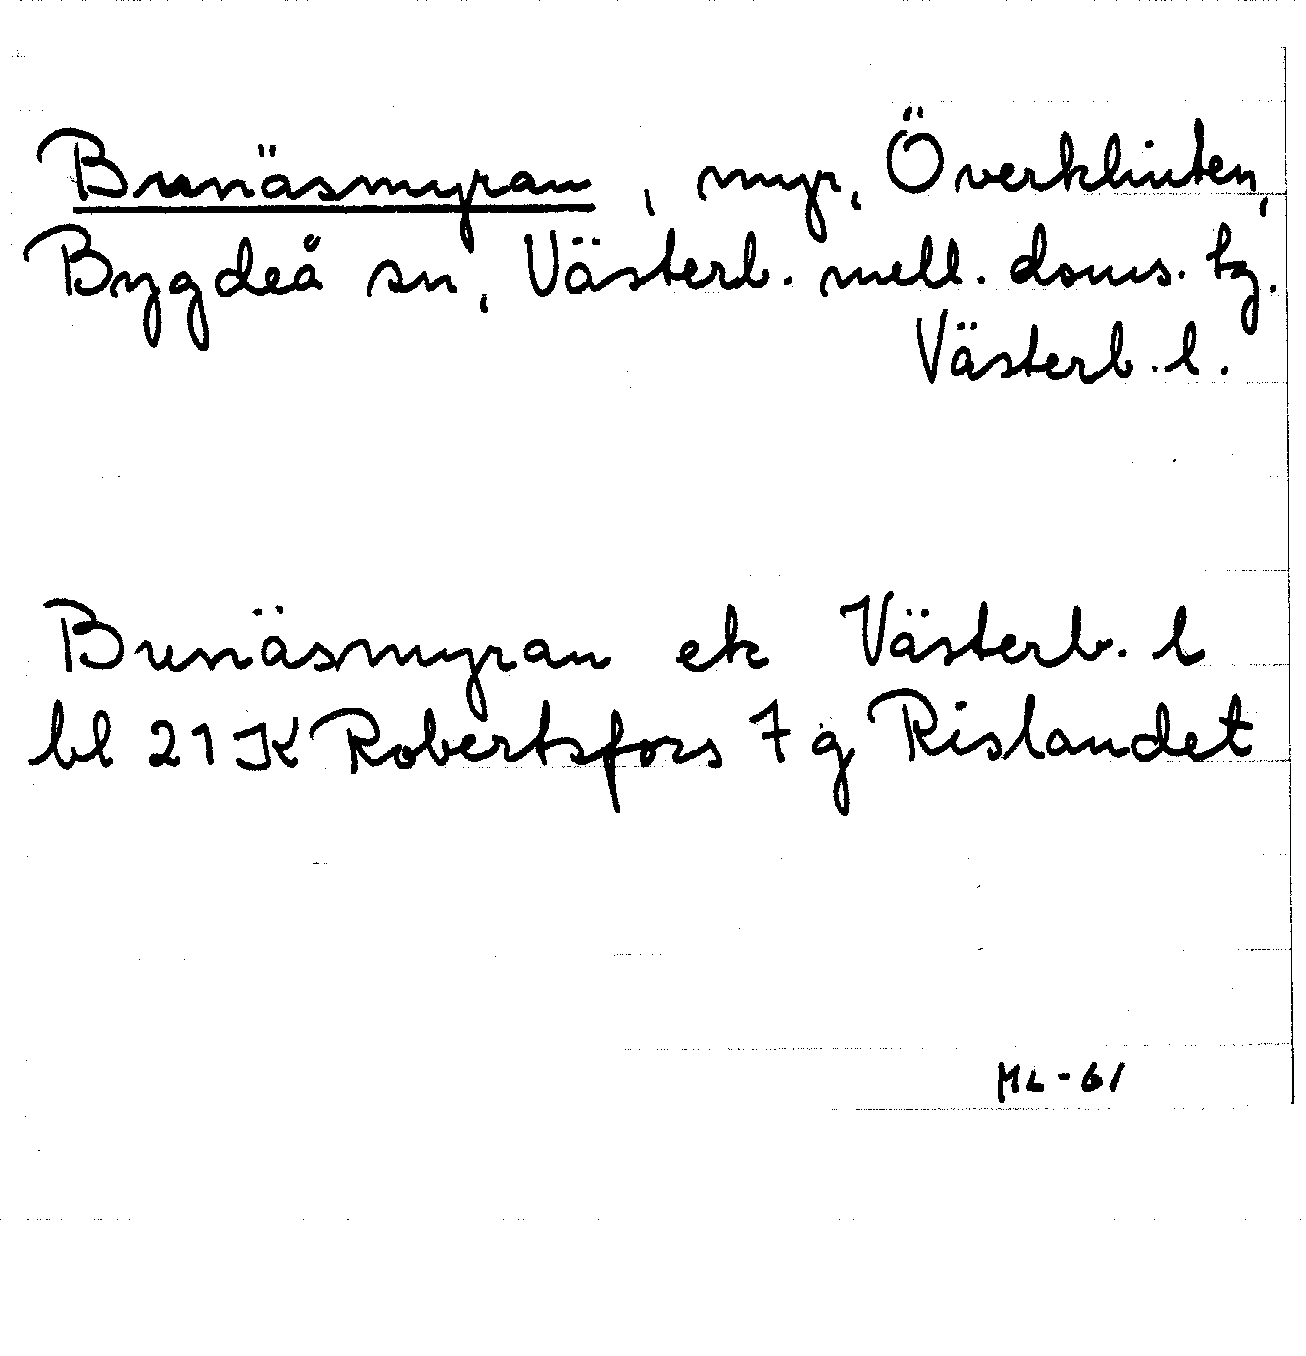 Bunäsmyran, myr, Överklinten,
Bygdeå sn, Västerb. mell. doms. tg.
Västerb.l.
Bunäsmyran ek Västerb. l
bl 21 K Robertsfors 7 g Rislandet
ML-61